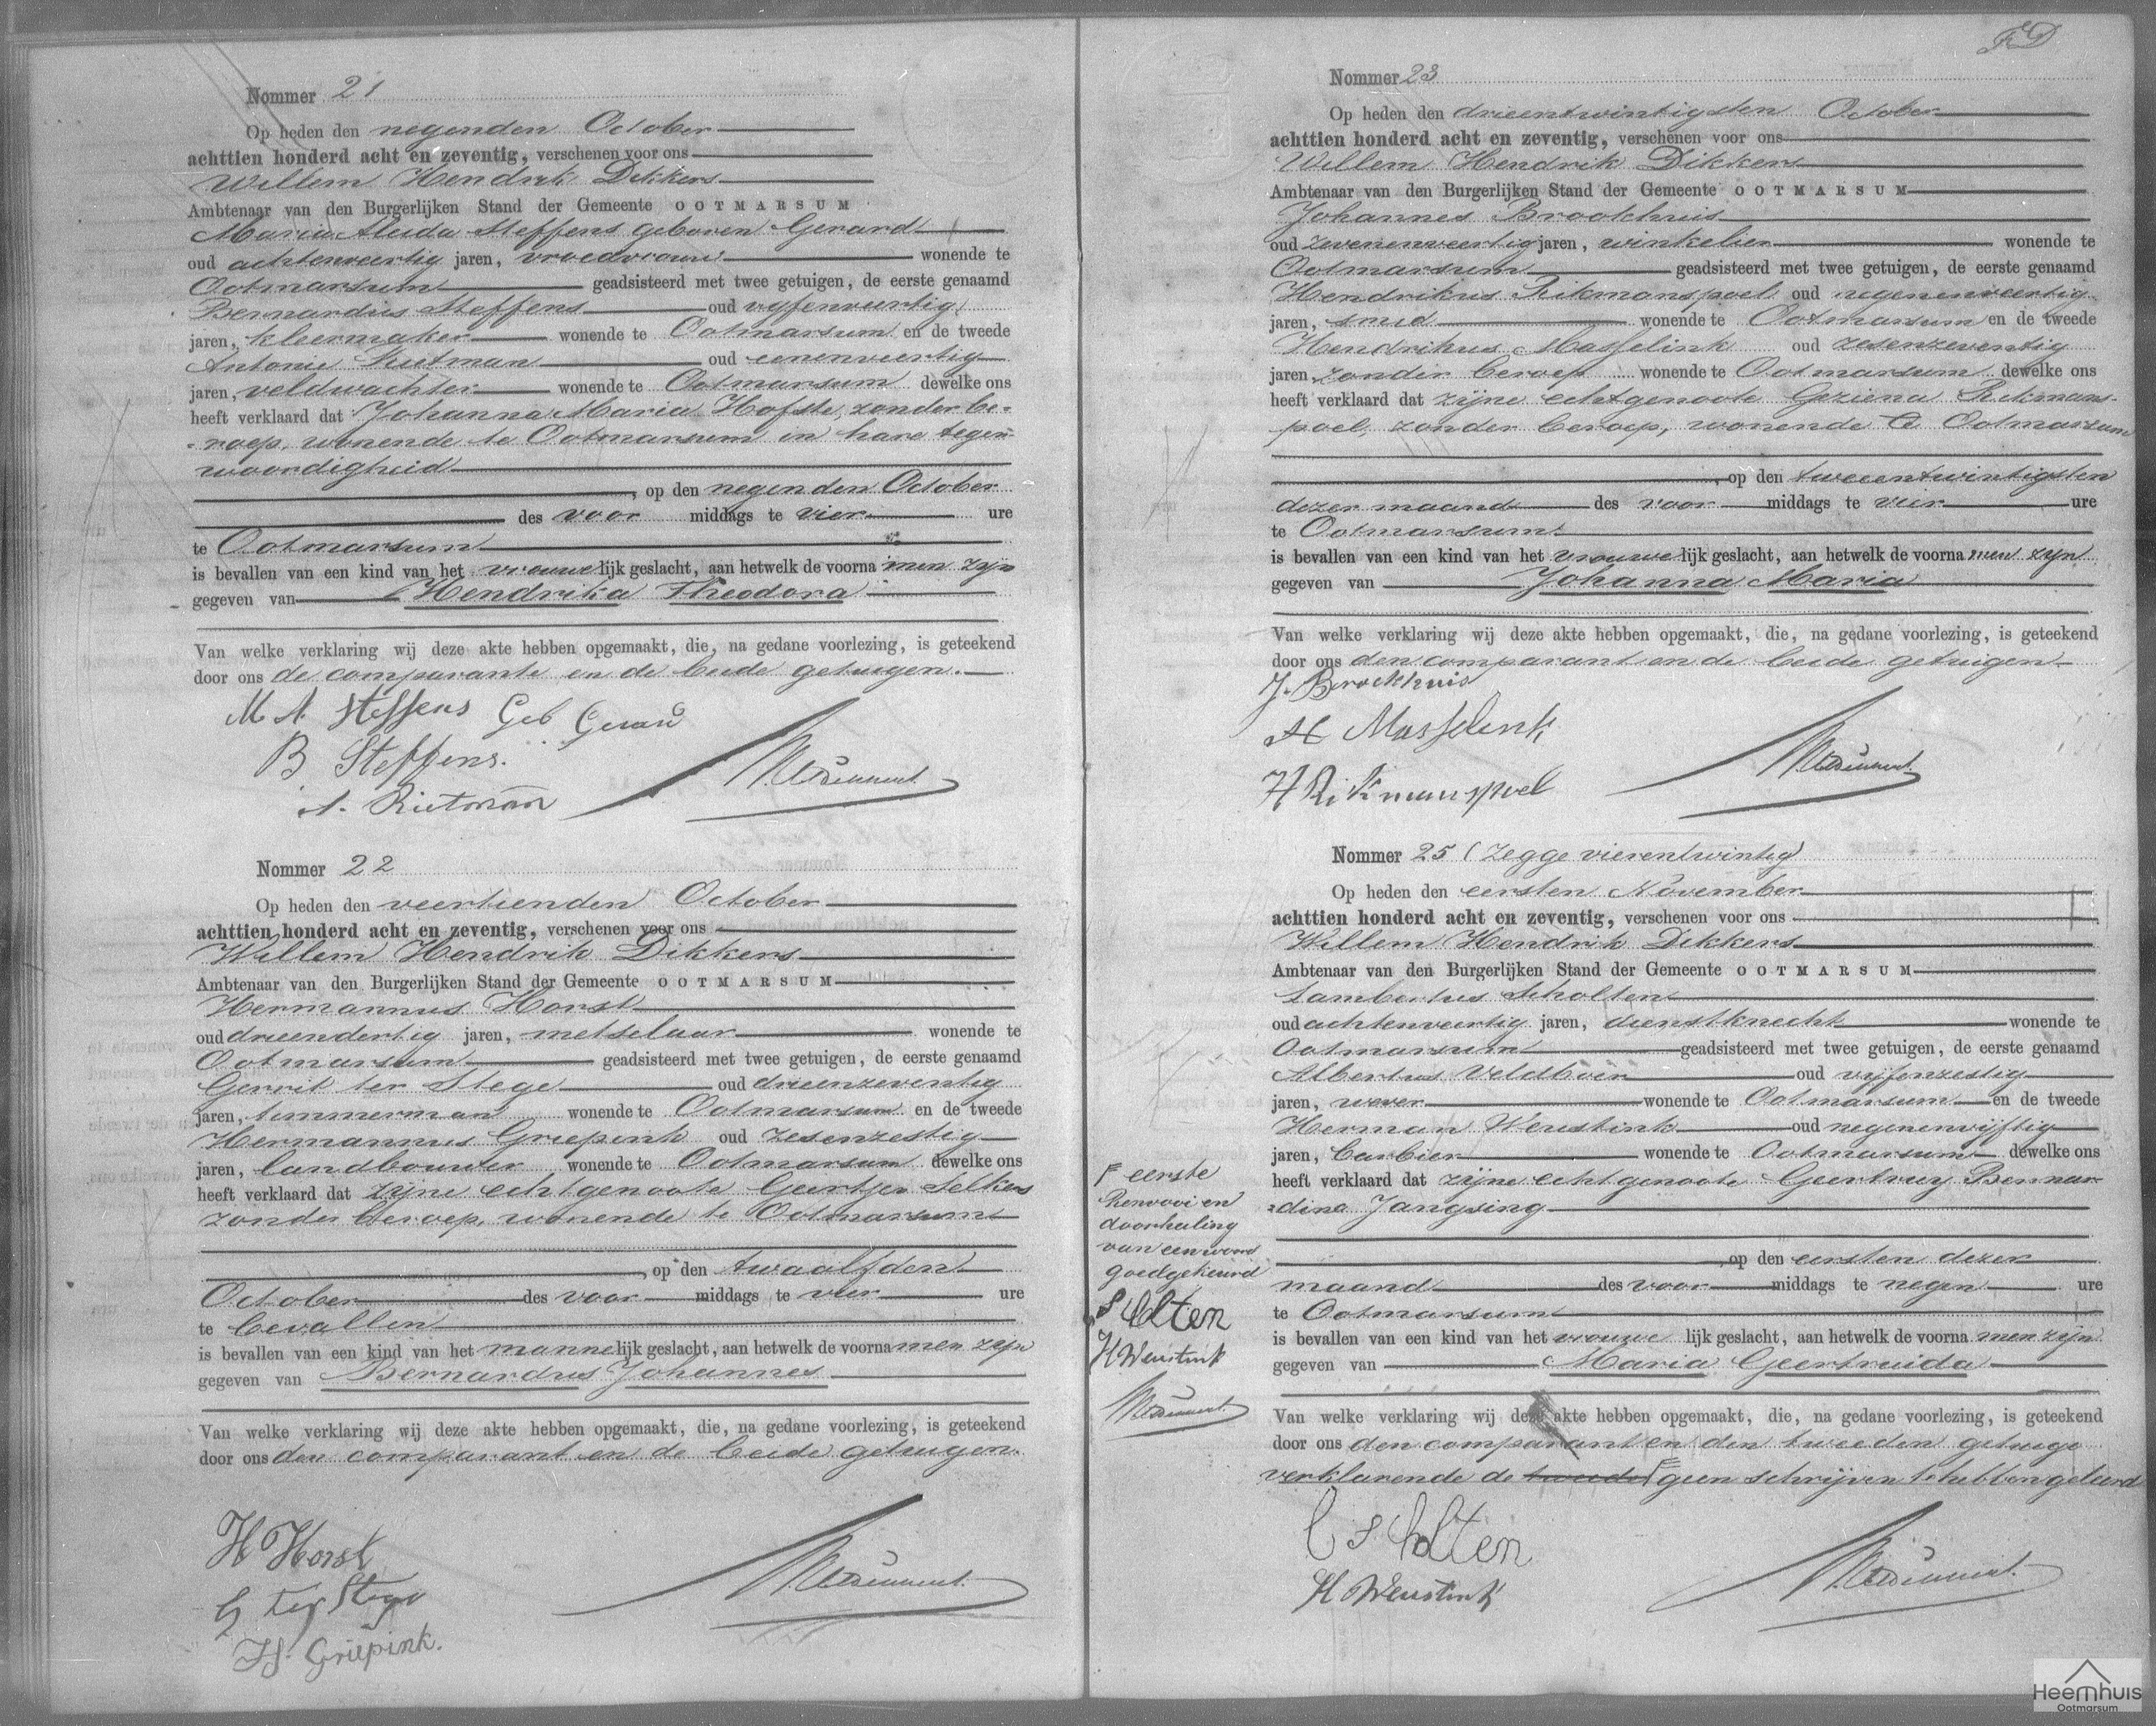 Nommer 21
Op heden den negenden October
achttien honderd acht en zeventig, verschenen voor ons
Willem Hendrik Dikkers
Ambtenaar van den Burgerlijken Stand der Gemeente OOTMARSUM
Maria Aleida Steffens geboren Gerard
oud achtenveertig jaren, vroedvrouw wonende te
Ootmarsum geadsisteerd met twee getuigen, de eerste genaamd
Bernardus Steffens oud vyfenveertig
jaren, kleermaker wonende te Ootmarsum en de tweede
Antonie Rietman oud eenenveertig
jaren, veldwachter wonende te Ootmarsum dewelke ons
heeft verklaard dat Johanna Maria Hofste, zonder be-
-roep, wonende te Ootmarsum in hare tegen-
woordigheid
, op den negenden October
des voor middags te vier ure
te Ootmarsum
is bevallen van een kind van het vrouwelijk geslacht, aan hetwelk de voorna men zijn
gegeven van Hendrika Theodora
Van welke verklaring wij deze akte hebben opgemaakt, die, na gedane voorlezing, is geteekend
door ons de comparante en de beide getuigen.
M A Steffens Geb Gerard
B Steffens.
A. Rietman
Nommer 22
Op heden den veertienden October
achttien honderd acht en zeventig, verschenen voor ons
Willem Hendrik Dikkers
Ambtenaar van den Burgerlijken Stand der Gemeente OOTMARSUM
Hermannus Horst
oud drieendertig jaren, metselaar wonende te
Ootmarsum geadsisteerd met twee getuigen, de eerste genaamd
Gerrit ter Stege oud drieenzeventig
jaren, timmerman wonende te Ootmarsum en de tweede
Hermannus Griepink oud zesenzestig
jaren, landbouwer wonende te Ootmarsum dewelke ons
heeft verklaard dat zijne echtgenoote Geertjen Selkers
zonder beroep, wonende te Ootmarsum
, op den twaalfden
October des voor middags te vier ure
te bevallen
is bevallen van een kind van het mannelijk geslacht, aan hetwelk de voorna men zijn
gegeven van Bernardus Johannes
Van welke verklaring wij deze akte hebben opgemaakt, die, na gedane voorlezing, is geteekend
door ons den comparant en de beide getuigen.
H Horst
G ter Stege
H. Griepink.
FD
Nommer 23
Op heden den drieentwintigsten October
achttien honderd acht en zeventig, verschenen voor ons
Willem Hendrik Dikkers
Ambtenaar van den Burgerlijken Stand der Gemeente OOTMARSUM
Johannes Brookhuis
oud zevenenveertig jaren, winkelier wonende te
Ootmarsum geadsisteerd met twee getuigen, de eerste genaamd
Hendrikus Rikmanspoel oud negenenveertig
jaren, smid wonende te Ootmarsum en de tweede
Hendrikus Masselink oud zesenzeventig
jaren, zonder beroep wonende te Ootmarsum dewelke ons
heeft verklaard dat zijne echtgenoote Geziena Rikmans-
poel, zonder beroep, wonende te Ootmarsum
, op den tweeentwintigsten
dezer maand des voor middags te vier ure
te Ootmarsum
is bevallen van een kind van het vrouwelijk geslacht, aan hetwelk de voorna men zijn
gegeven van Johanna Maria
Van welke verklaring wij deze akte hebben opgemaakt, die, na gedane voorlezing, is geteekend
door ons den comparant en de beide getuigen
J. Broekhuis
H Masselink
H Rikmanspoel
Nommer 25 (zegge vierentwintig)
Op heden den eersten November
achttien honderd acht en zeventig, verschenen voor ons
Willem Hendrik Dikkers
Ambtenaar van den Burgerlijken Stand der Gemeente OOTMARSUM
Lambertus Scholten
oud achtenveertig jaren, dienstknecht wonende te
Ootmarsum geadsisteerd met twee getuigen, de eerste genaamd
Albertus Veldboer oud vijfenzestig
jaren, wever wonende te Ootmarsum en de tweede
Herman Weustink oud negenenvijftig
jaren, barbier wonende te Ootmarsum dewelke ons
heeft verklaard dat zijne echtgenoote Geertruy Bernar
=dina Jangsing
, op den eersten dezer
maand des voor middags te negen ure
te Ootmarsum
is bevallen van een kind van het vrouwe lijk geslacht, aan hetwelk de voorna men zijn
gegeven van Maria Geertruida
Van welke verklaring wij deze akte hebben opgemaakt, die, na gedane voorlezing, is geteekend
door ons den comparant en den tweeden getuige
verklarende de tweede geen schrijven te hebben geleerd
L Scholten
H Weustink
eerste
Renvooi en
doorhaling
van een woord
goedgekeurd
Scholten
H Weustink
Heemhuis
Ootmarsum